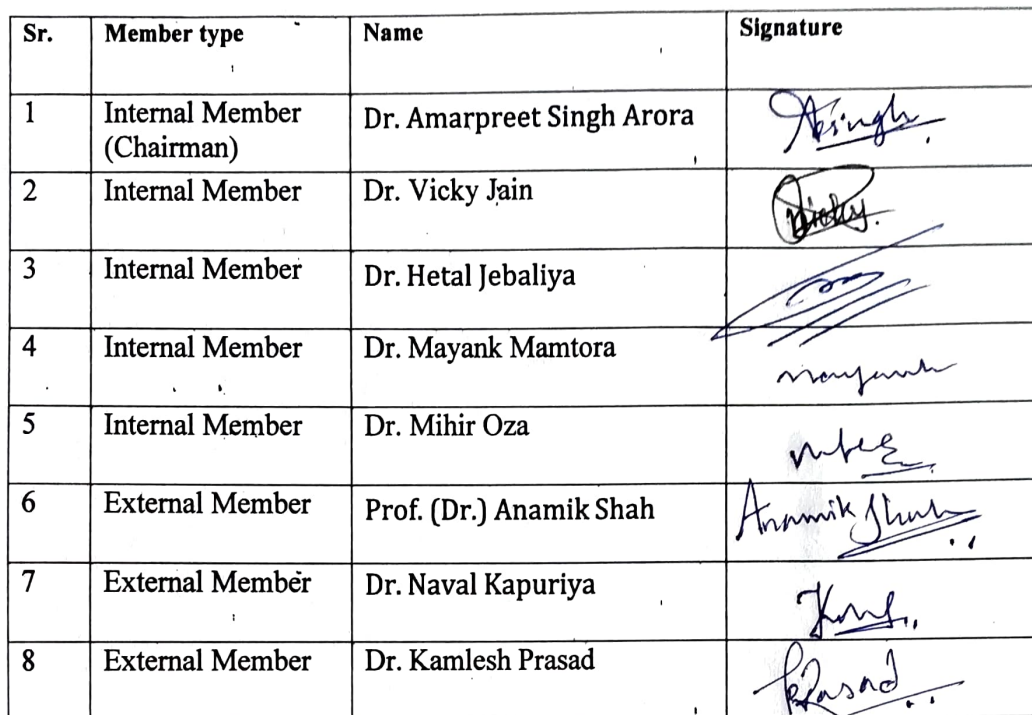 Sr. Member type Name Signature
1 Internal Member Dr. Amarpreet Singh Arora ASingh
(Chairman)
2 Internal Member Dr. Vicky Jain Vicky.
3 Internal Member Dr. Hetal Jebaliya
4 Internal Member Dr. Mayank Mamtora mayank
5 Internal Member Dr. Mihir Oza
6 External Member Prof. (Dr.) Anamik Shah Anamik Shah
7 External Member Dr. Naval Kapuriya
8 External Member Dr. Kamlesh Prasad KPrasad